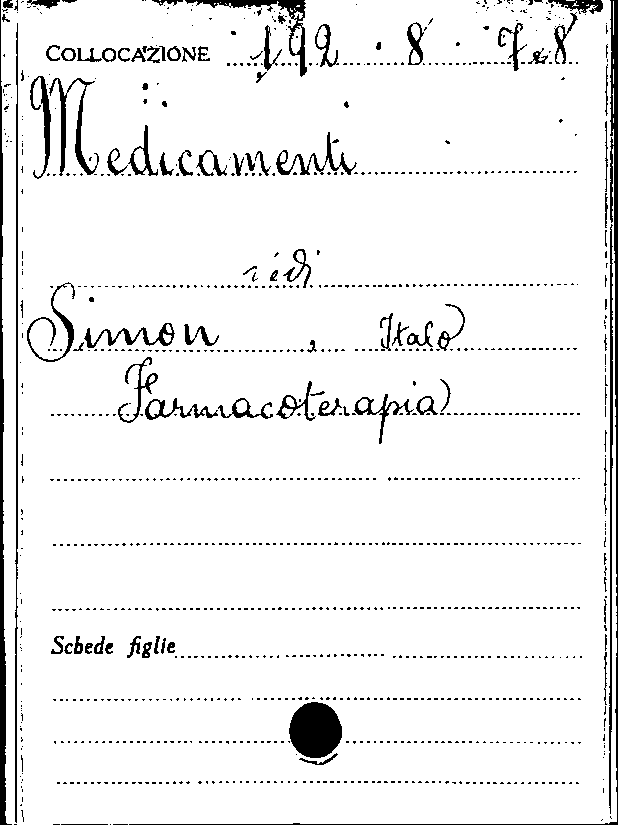 COLLOCAZIONE 192 . 8 . 7 e 8
Medicamenti
vedi
Simon , Italo
Farmacoterapia
Schede figlie